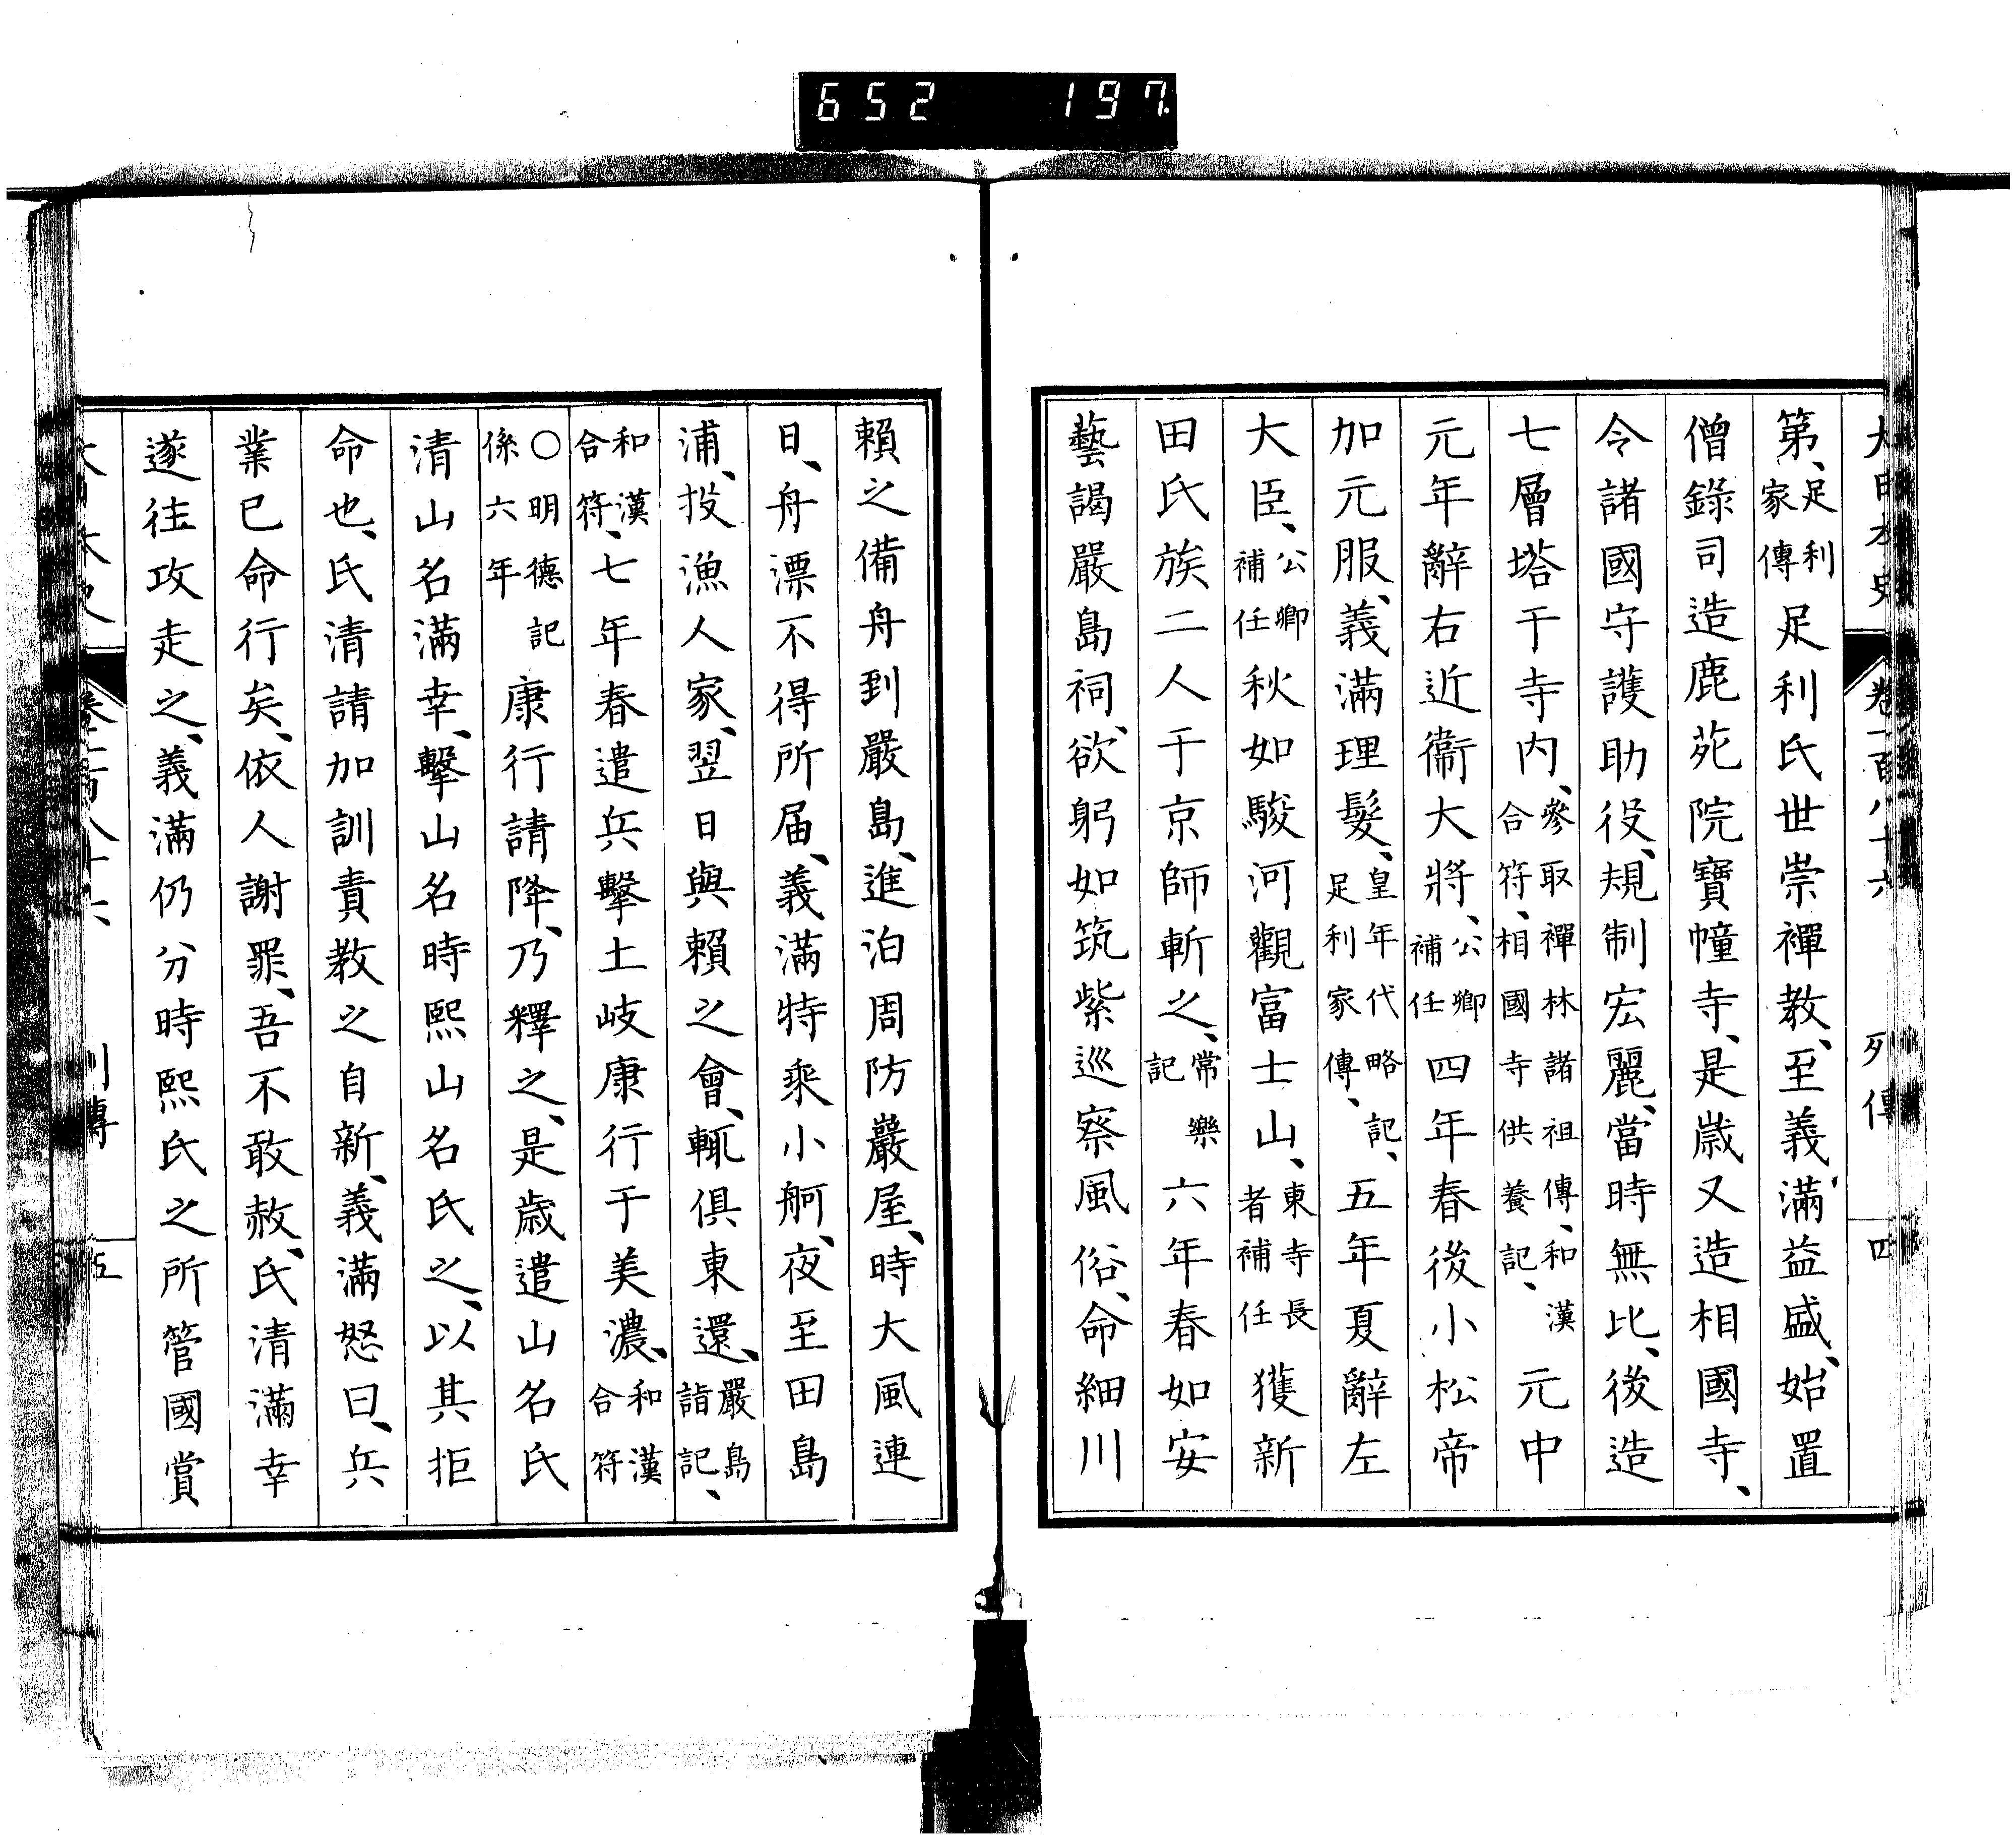 652 197
大日本史 卷一百八十六 列傳 四
第、足利家傳足利氏世崇禪教、至義滿益盛、始置
僧錄司造鹿苑院寶幢寺、是歳又造相國寺、
令諸國守護助役、規制宏麗、當時無比、後造
七層塔于寺内、參取禪林諸祖傳、和漢合符、相國寺供養記、元中
元年辭右近衞大將、公卿補任四年春後小松帝
加元服、義滿理髮、皇年代略記、足利家傳、五年夏辭左
大臣、公卿補任秋如駿河觀富士山、東寺長者補任獲新
田氏族二人于京師斬之、常樂記六年春如安
藝謁嚴島祠、欲躬如筑紫巡察風俗、命細川
賴之備舟到嚴島、進泊周防巖屋、時大風連
日、舟漂不得所届、義滿特乘小舸、夜至田島
浦、投漁人家、翌日與賴之會、輒俱東還、嚴島詣記、
和漢合符、七年春遣兵擊土岐康行于美濃、和漢合符
○明德記係六年康行請降、乃釋之、是歳遣山名氏
清山名滿幸、擊山名時熙山名氏之、以其拒
命也、氏清請加訓責教之自新、義滿怒曰、兵
業已命行矣、依人謝罪、吾不敢赦、氏清滿幸
遂往攻走之、義滿仍分時熙氏之所管國賞
列傳 五